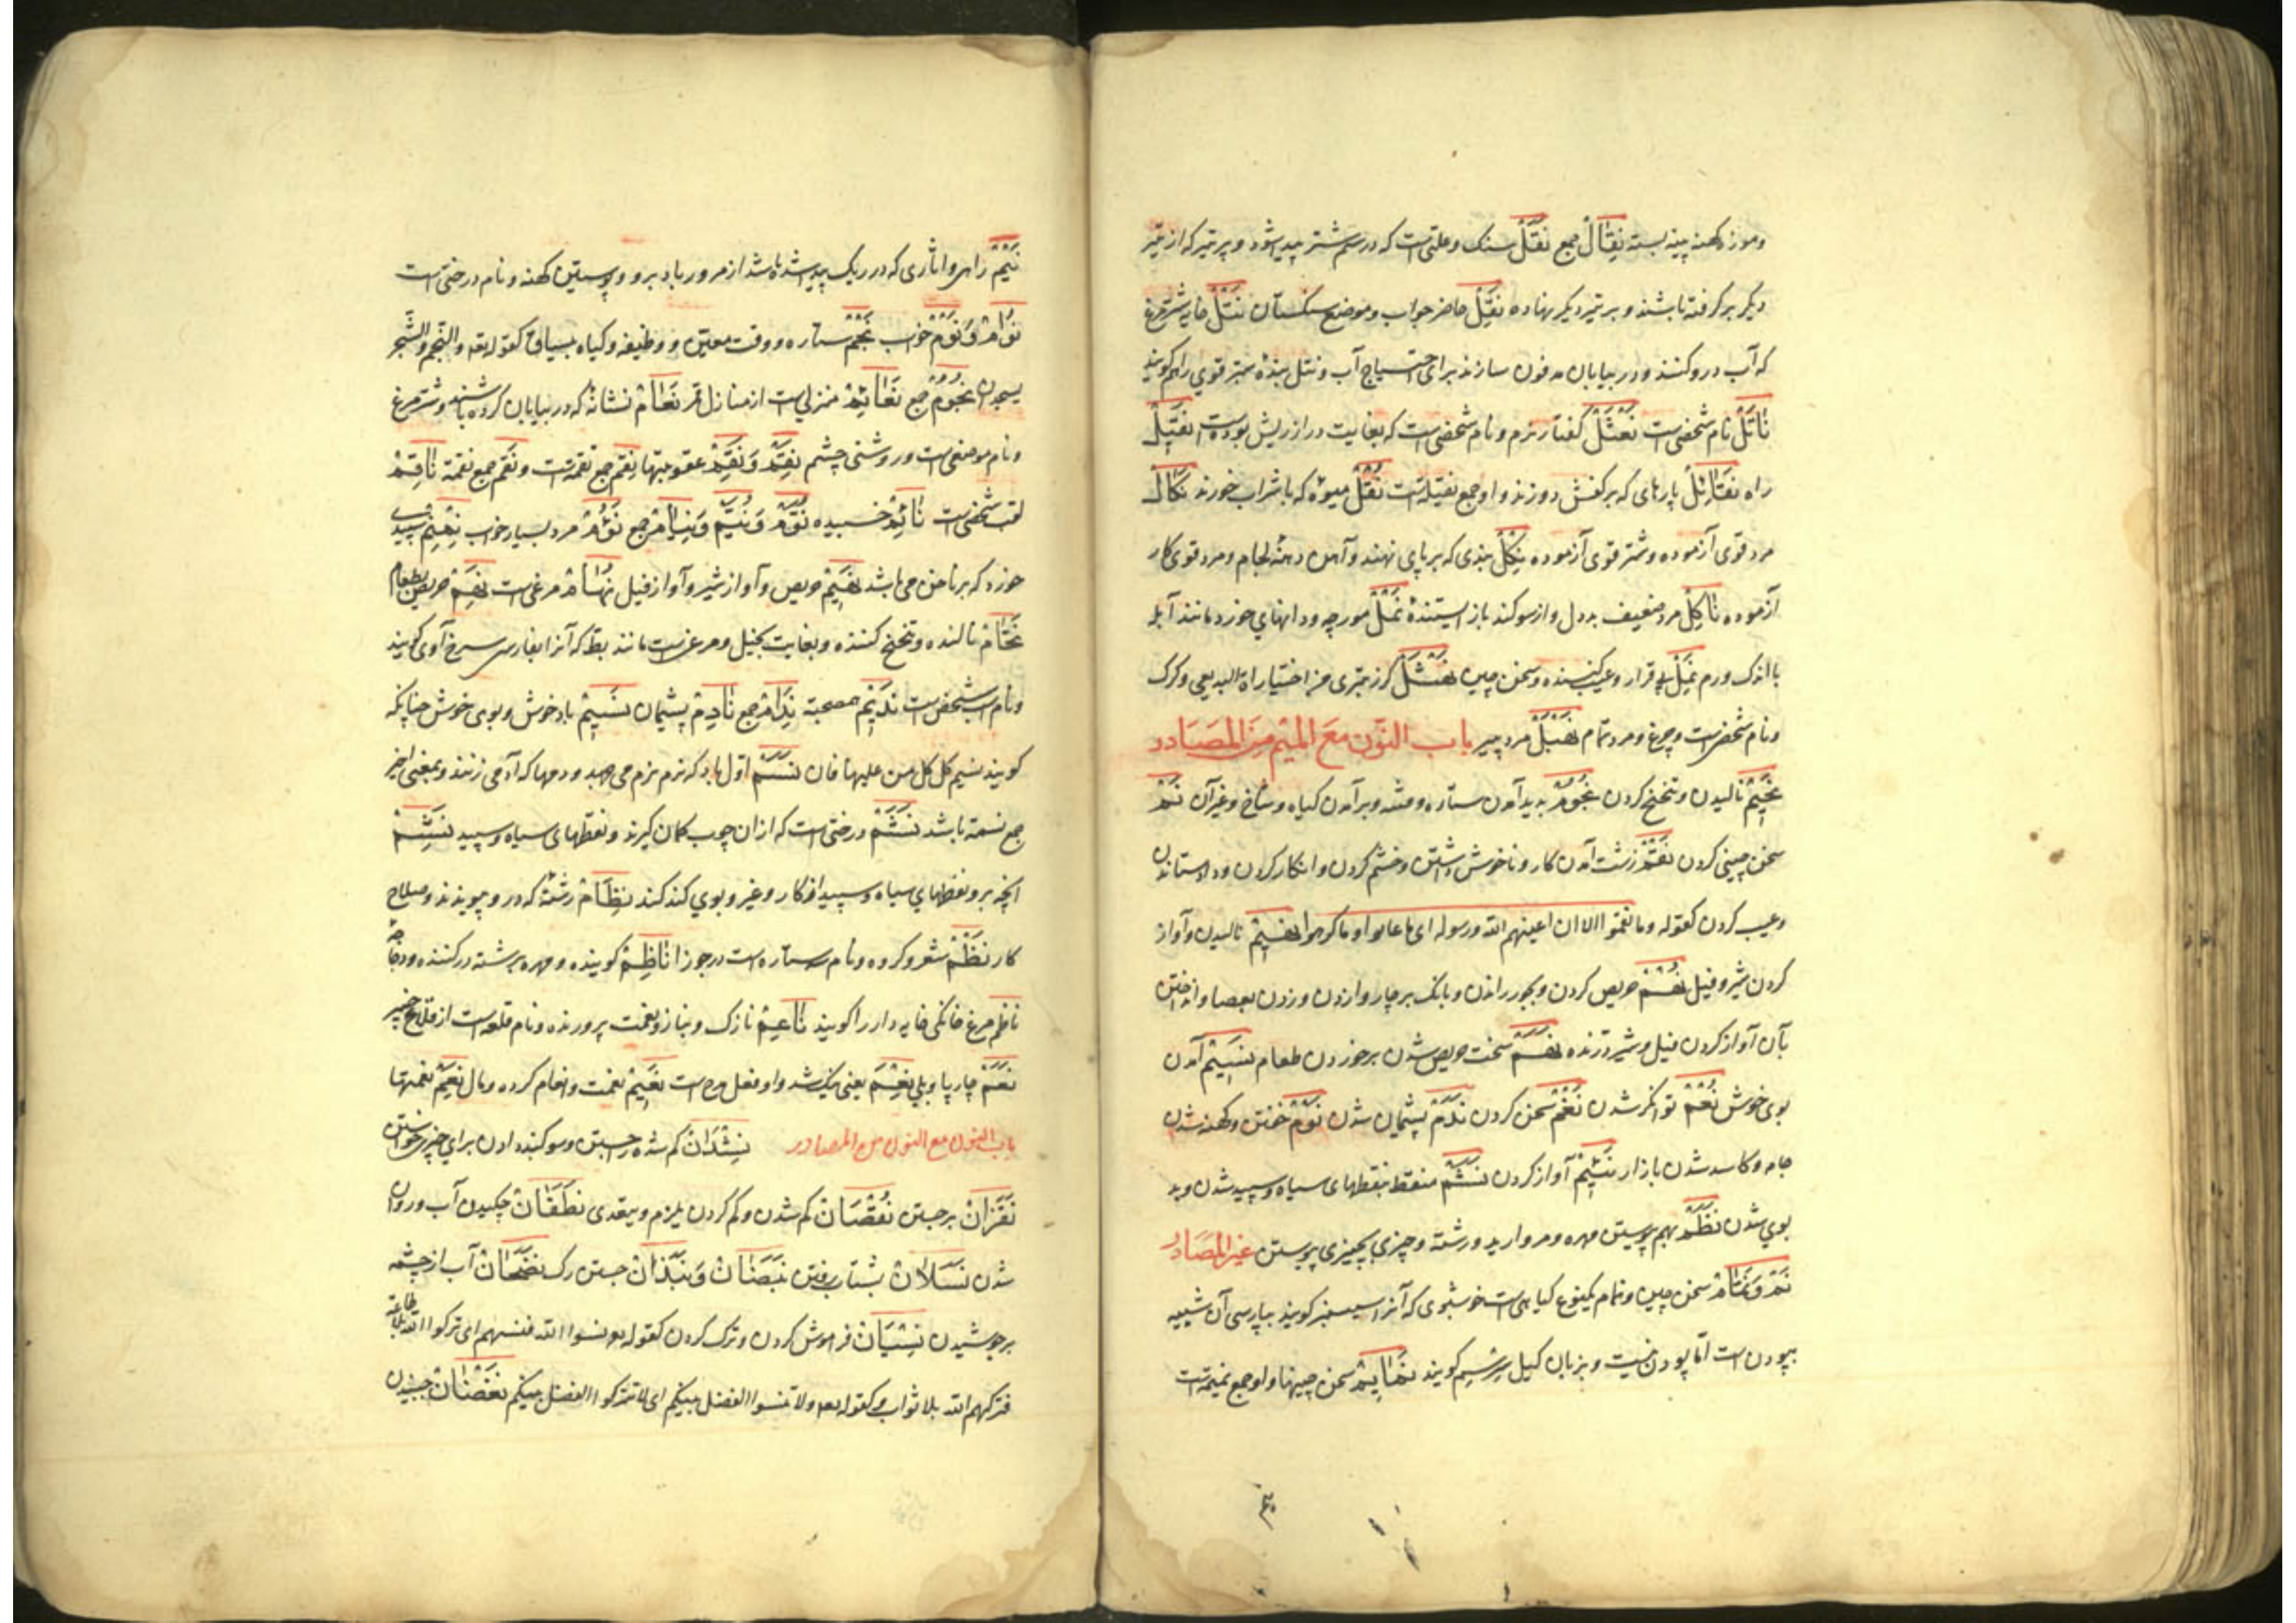 وموزه کهنه پینه بسته نِقَالْ جمع نَقَلْ سنک وعلتی است که در سم شتر پیدا شود و پر تیر که از تیر
دیکر بر کرفته باشند و بر تیر دیکر نهاده نَقِلْ حاضر جواب وموضع سنکستان نَتَلْ خایه شترمرغ
که آب درو کنند و در بیابان مدفون سازند برای احتیاج آب و نتل بنده ستبر قوی را هم کویند
نَاتَلْ نام شخصی است نَعْثَلْ کفتار نرم و نام شخصی است که بغایت دراز ریش بوده است نَقِیلْ
راه نَقَائِلْ پارهای که بر کفش دوزند و او جمع نقیله است نُقْلْ میوه که با شراب خورند نَکَالْ
مرد قوی آزموده وشتر قوی آزموده نِکْلْ بندی که بر پای نهند وآهن دهنه لجام و مرد قوی کار
آزموده نَاکِلْ مرد ضعیف بددل و از سوکند باز ایستنده نَمْلْ مورچه ودانهای خورد مانند آبله
با اندک ورم نَمِلْ بی قرار وعیب کننده وسخن چین نَهْشَلْ کرز ستبری من اختیاراة البدیعی و کرک
ونام شخصی است وچرغ و مرد تمام نَهْبَلْ مرد پیر باب النّون مَعَ المِیم مِنَ المَصَادر
نَحِیمْ نالیدن وتنحنح کردن نُجُومْ پدید آمدن ستاره ومشه وبرآمدن کیاه وشاخ وغیرآن نَمّ
سخن چینی کردن نَقْمْ زشت آمدن کار و ناخوش داشتن وخشم کردن وانکار کردن وداد ستاندن
وعیب کردن کقوله وما نقموا الا ان اغنیهم الله ورسوله ای ما عابوا او ما کرهوا نَهِیمْ نالیدن وآواز
کردن شیر و فیل نَهْمْ حریص کردن وبجور راندن وبانک بر چاروا زدن وزدن بعصا وانداختن
بآن آواز کردن فیل وشیر درنده نَهَمْ سخت حریص شدن بر خوردن طعام نَسِیمْ آمدن
بوی خوش نُعْمْ توانکر شدن نَغْمْ سخن کردن نَدَمْ پشیمان شدن نَوْمْ خفتن وکهنه شدن
جامه وکاسد شدن بازار نَئِیمْ آواز کردن نَشَمْ منقط بنقطهای سیاه وسپید شدن وبد
بوی شدن نَظْمْ بهم پیوستن مهره ومروارید ورشته وچیزی بچیزی پیوستن غیر المَصَادِر
نَمّ وَنَمَّامْ سخن چین ونمام یکنوع کیاهی است خوشبوی که آنرا سیسنبر کویند بپارسی آن شبیه
بپودن است اما پودن نیست وبزبان کیل سرسیم کویند نَمَایِمْ سخن چینها واو جمع نمیمه است
نِیمْ راهی واثاری که در ریک پیدا شده باشد از مرور باد برو وپوستین کهنه ونام درختی است
نُوَامْ وَنَوْمْ خواب نَجْمْ ستاره ووقت معین ووظیفه وکیاه بی ساق کقوله تعه والنجم والشجر
یسجدان نُجُومْ جمع نَعَائِمْ منزلی است از منازل قمر نَعَامْ نشانه که در بیابان کرده باشند وشترمرغ
ونام موضعی است وروشنی چشم نِقَمْ وَنَقِمْ عقوبتها نِقَمْ جمع نقمة است ونَقِم جمع نقمة نَاقِمْ
لقب شخصی است نَائِمْ خسبیده نُوَّمْ وَنُیَّمْ وَنِیَامْ جمع نَؤُمْ مرد بسیار خواب نِمْنِمْ سپیدی
خورد که بر ناخن می باشد نَهِیمْ حریص وآواز شیر وآواز فیل نُهَامْ مرغی است نَهِمْ حریص بطعام
نَحَّامْ نالنده وتنحنح کننده وبغایت بخیل ومرغی است مانند بط که آنرا بفارسی سرخ آوی کویند
ونام اسب شخصی است نَدِیمْ هم صحبة نِدَامْ جمع نَادِمْ پشیمان نَسِیمْ باد خوش وبوی خوش چنانکه
کویند نسیم کل کل من علیها فان نَسَمْ اول باد که نرم نرم می جهد ودمها که آدمی زنند وبمعنی اخیر
جمع نسمة باشد نَشَمْ درختی است که ازان چوب کمان کیرند ونقطهای سیاه وسپید نَشِمْ
انچه برو نقطهای سیاه وسپید افکار وغیر وبوی کند کند نِظَامْ رشته که درو پیوندند وصلاح
کار نَظْمْ شعر وکروه ونام ستاره است در جوزا نَاظِمْ کوینده ومهره برشته در کننده ودجاجه
ناظم مرغ خانکی خایه دار را کویند نَاعِمْ نازک وبناز ونعمت پرورنده ونام قلعه است از قلاع خیبر
نَعَمْ چارپا وبلی نِعْمَ یعنی نیک شد واو فعل مدح است نَعِیمْ نعمت وانعام کرده ومال نِعَمْ نعمتها
باب النون مع النون من المصادر نِشْدَانْ کم شده جستن وسوکند دادن برای چیزی خواستن
نَقَزَانْ برجستن نُقْصَانْ کم شدن وکم کردن یلزم ویتعدی نَطَفَانْ چکیدن آب وروان
شدن نَسَلَانْ بشتاب رفتن نَبَضَانْ وَنَبَذَانْ جستن رک نَضَخَانْ آب از چشمه
برجوشیدن نِسْیَانْ فراموش کردن وترک کردن کقوله تعه نسوا الله فنسیهم ای ترکوا الله طاعة
فترکهم الله بلا ثواب وکقوله تعه ولا تنسوا الفضل بینکم ای لا تترکوا الفضل بینکم نَغَضَانْ جنبیدن